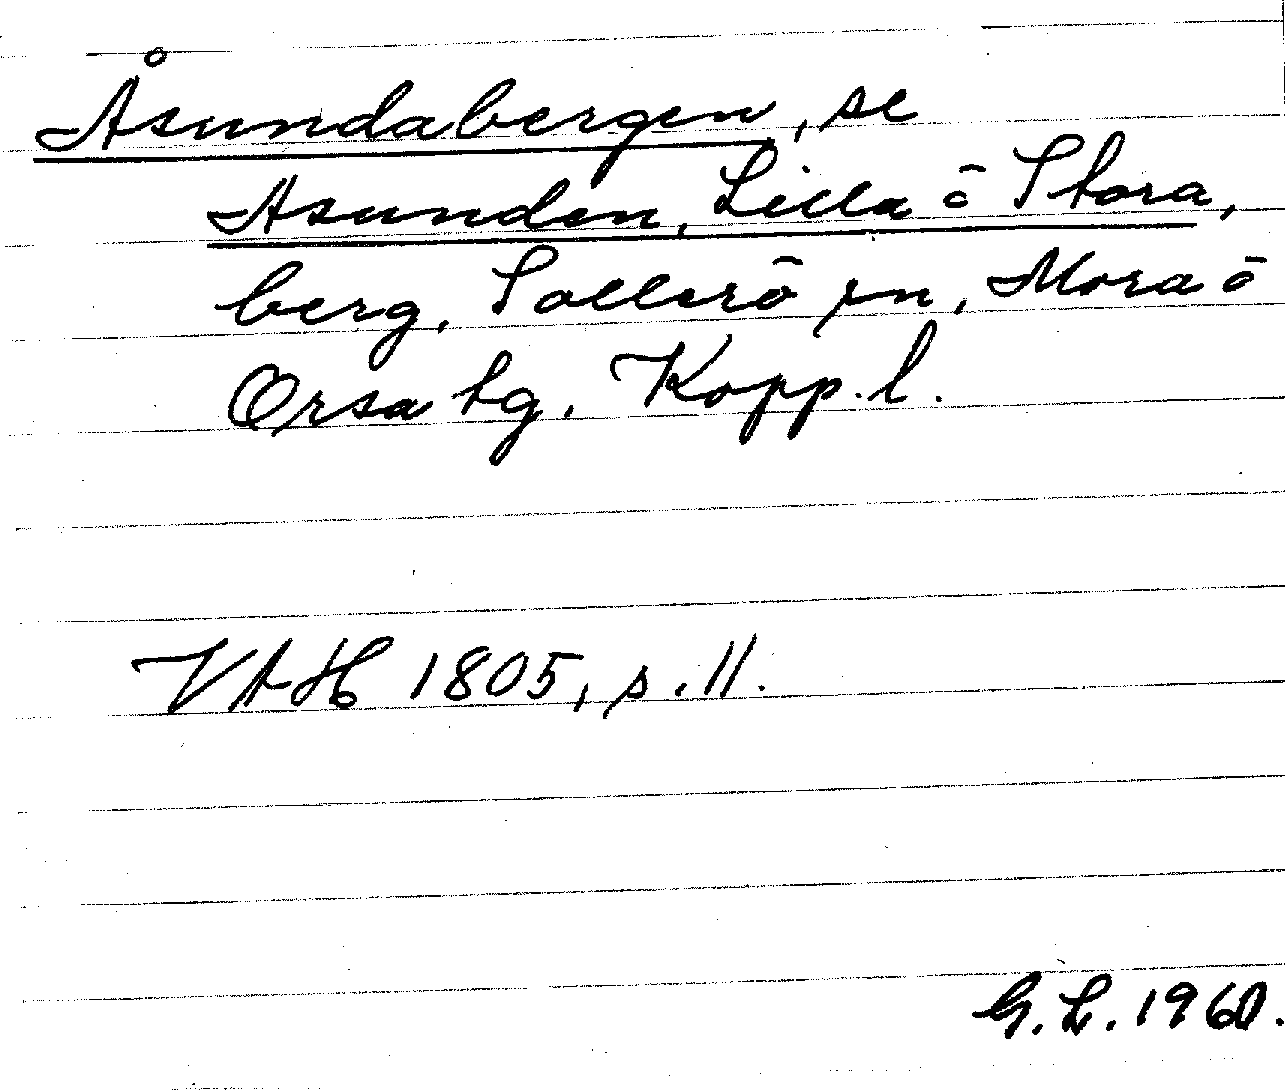 Åsundabergen, se
Asunden, Lilla o Stora,
berg, Sollerö sn, Mora o
Orsa tg, Kopp. l.
VAH 1805, s. 11.
G. L. 1960.